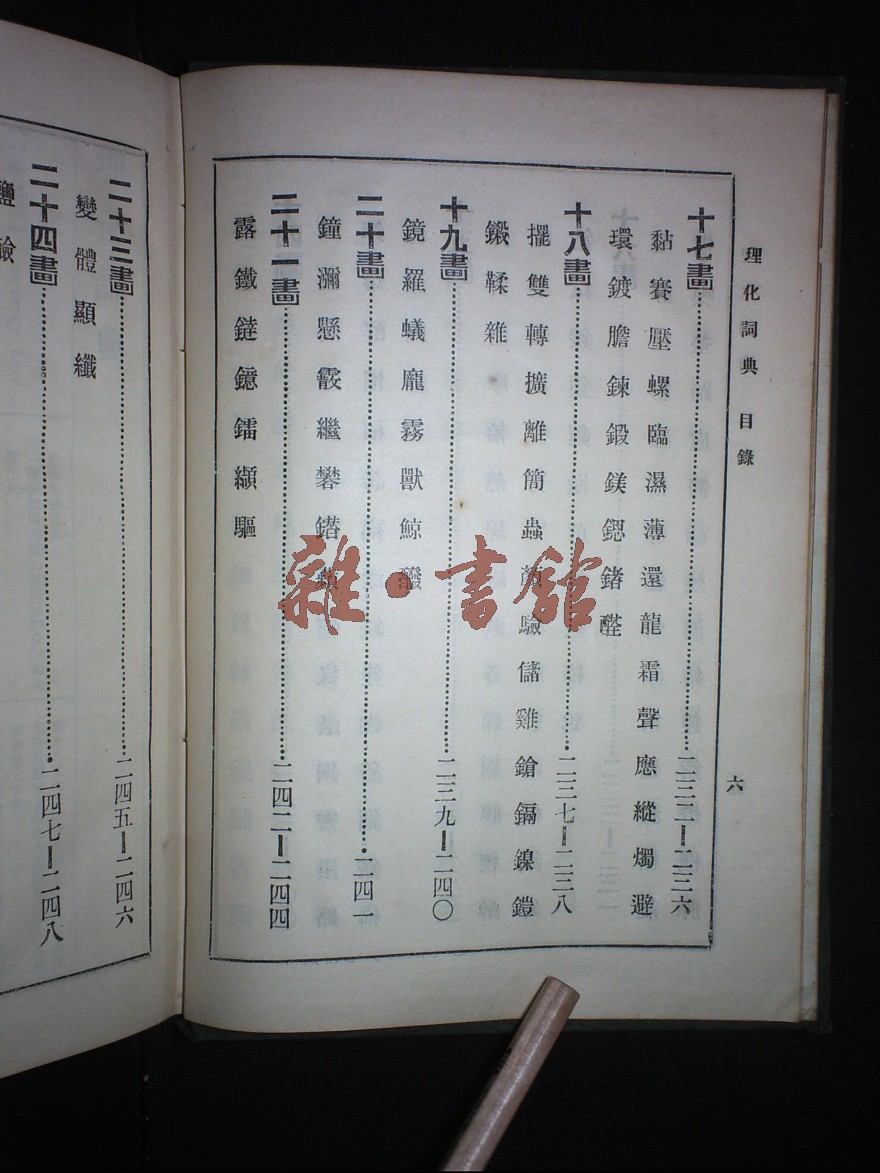 理化詞典 目錄
六
十七畫……二三三—二三六
黏賽壓螺臨濕薄還龍霜聲應縱燭避
環鍍膽鍊鍛鎂鍶鍺醛
十八畫……二三七—二三八
擺雙轉擴離簡蟲顏驗儲雞鎗鎘鎳鎧
鍛鞣雜
十九畫……二三九—二四〇
鏡羅蟻龐霧獸鯨醱
二十畫……二四一
鐘瀰懸霰繼礬鐟
二十一畫……二四二—二四四
露鐵鐽鐿鐳纈驅
二十三畫……二四五—二四六
變體顯纖
二十四畫……二四七—二四八
鹽鹼
雜·書館